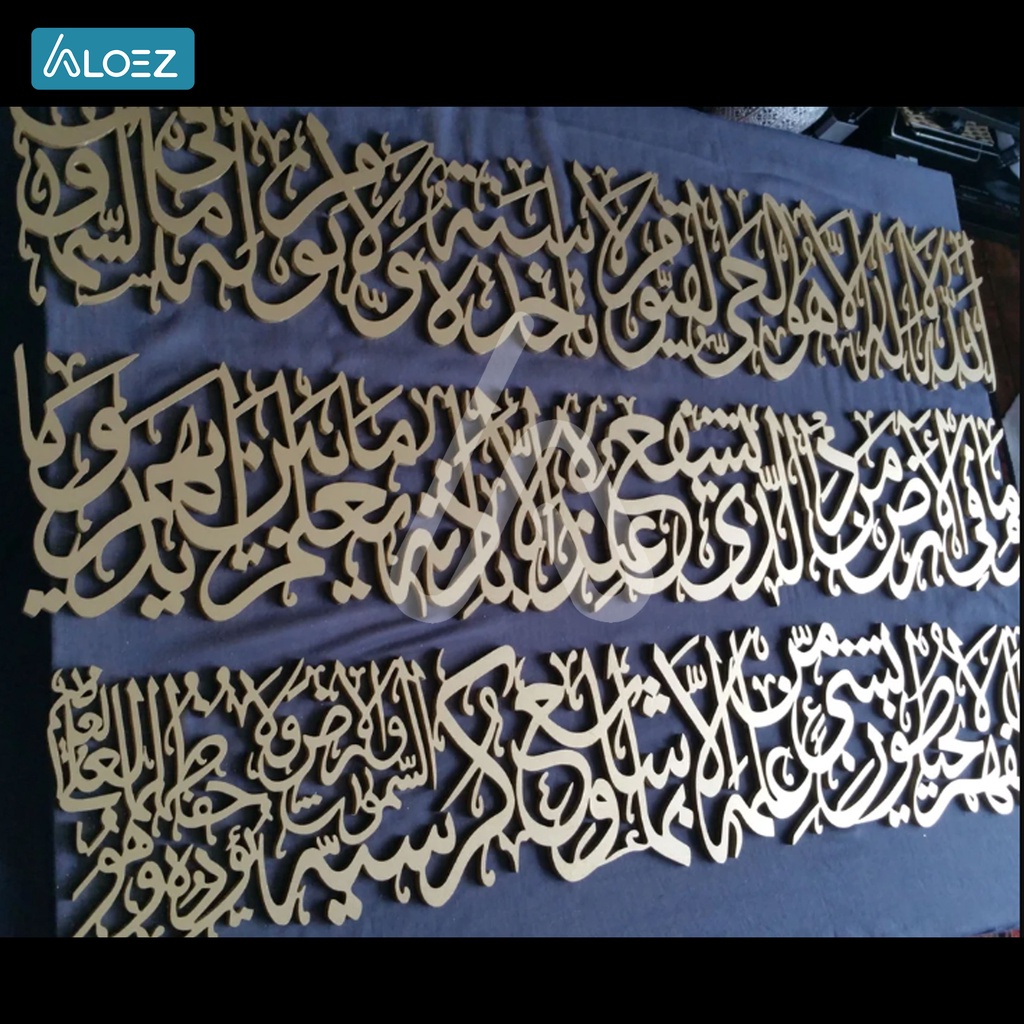 ALOEZ
الله لا إله إلا هو الحي القيوم لا تأخذه سنة ولا نوم له ما في السموت
وما في الأرض من ذا الذي يشفع عنده إلا بإذنه يعلم ما بين أيديهم وما
خلفهم ولا يحيطون بشيء من علمه إلا بما شاء وسع كرسيه السموات والأرض ولا يؤده حفظهما وهو العلي العظيم